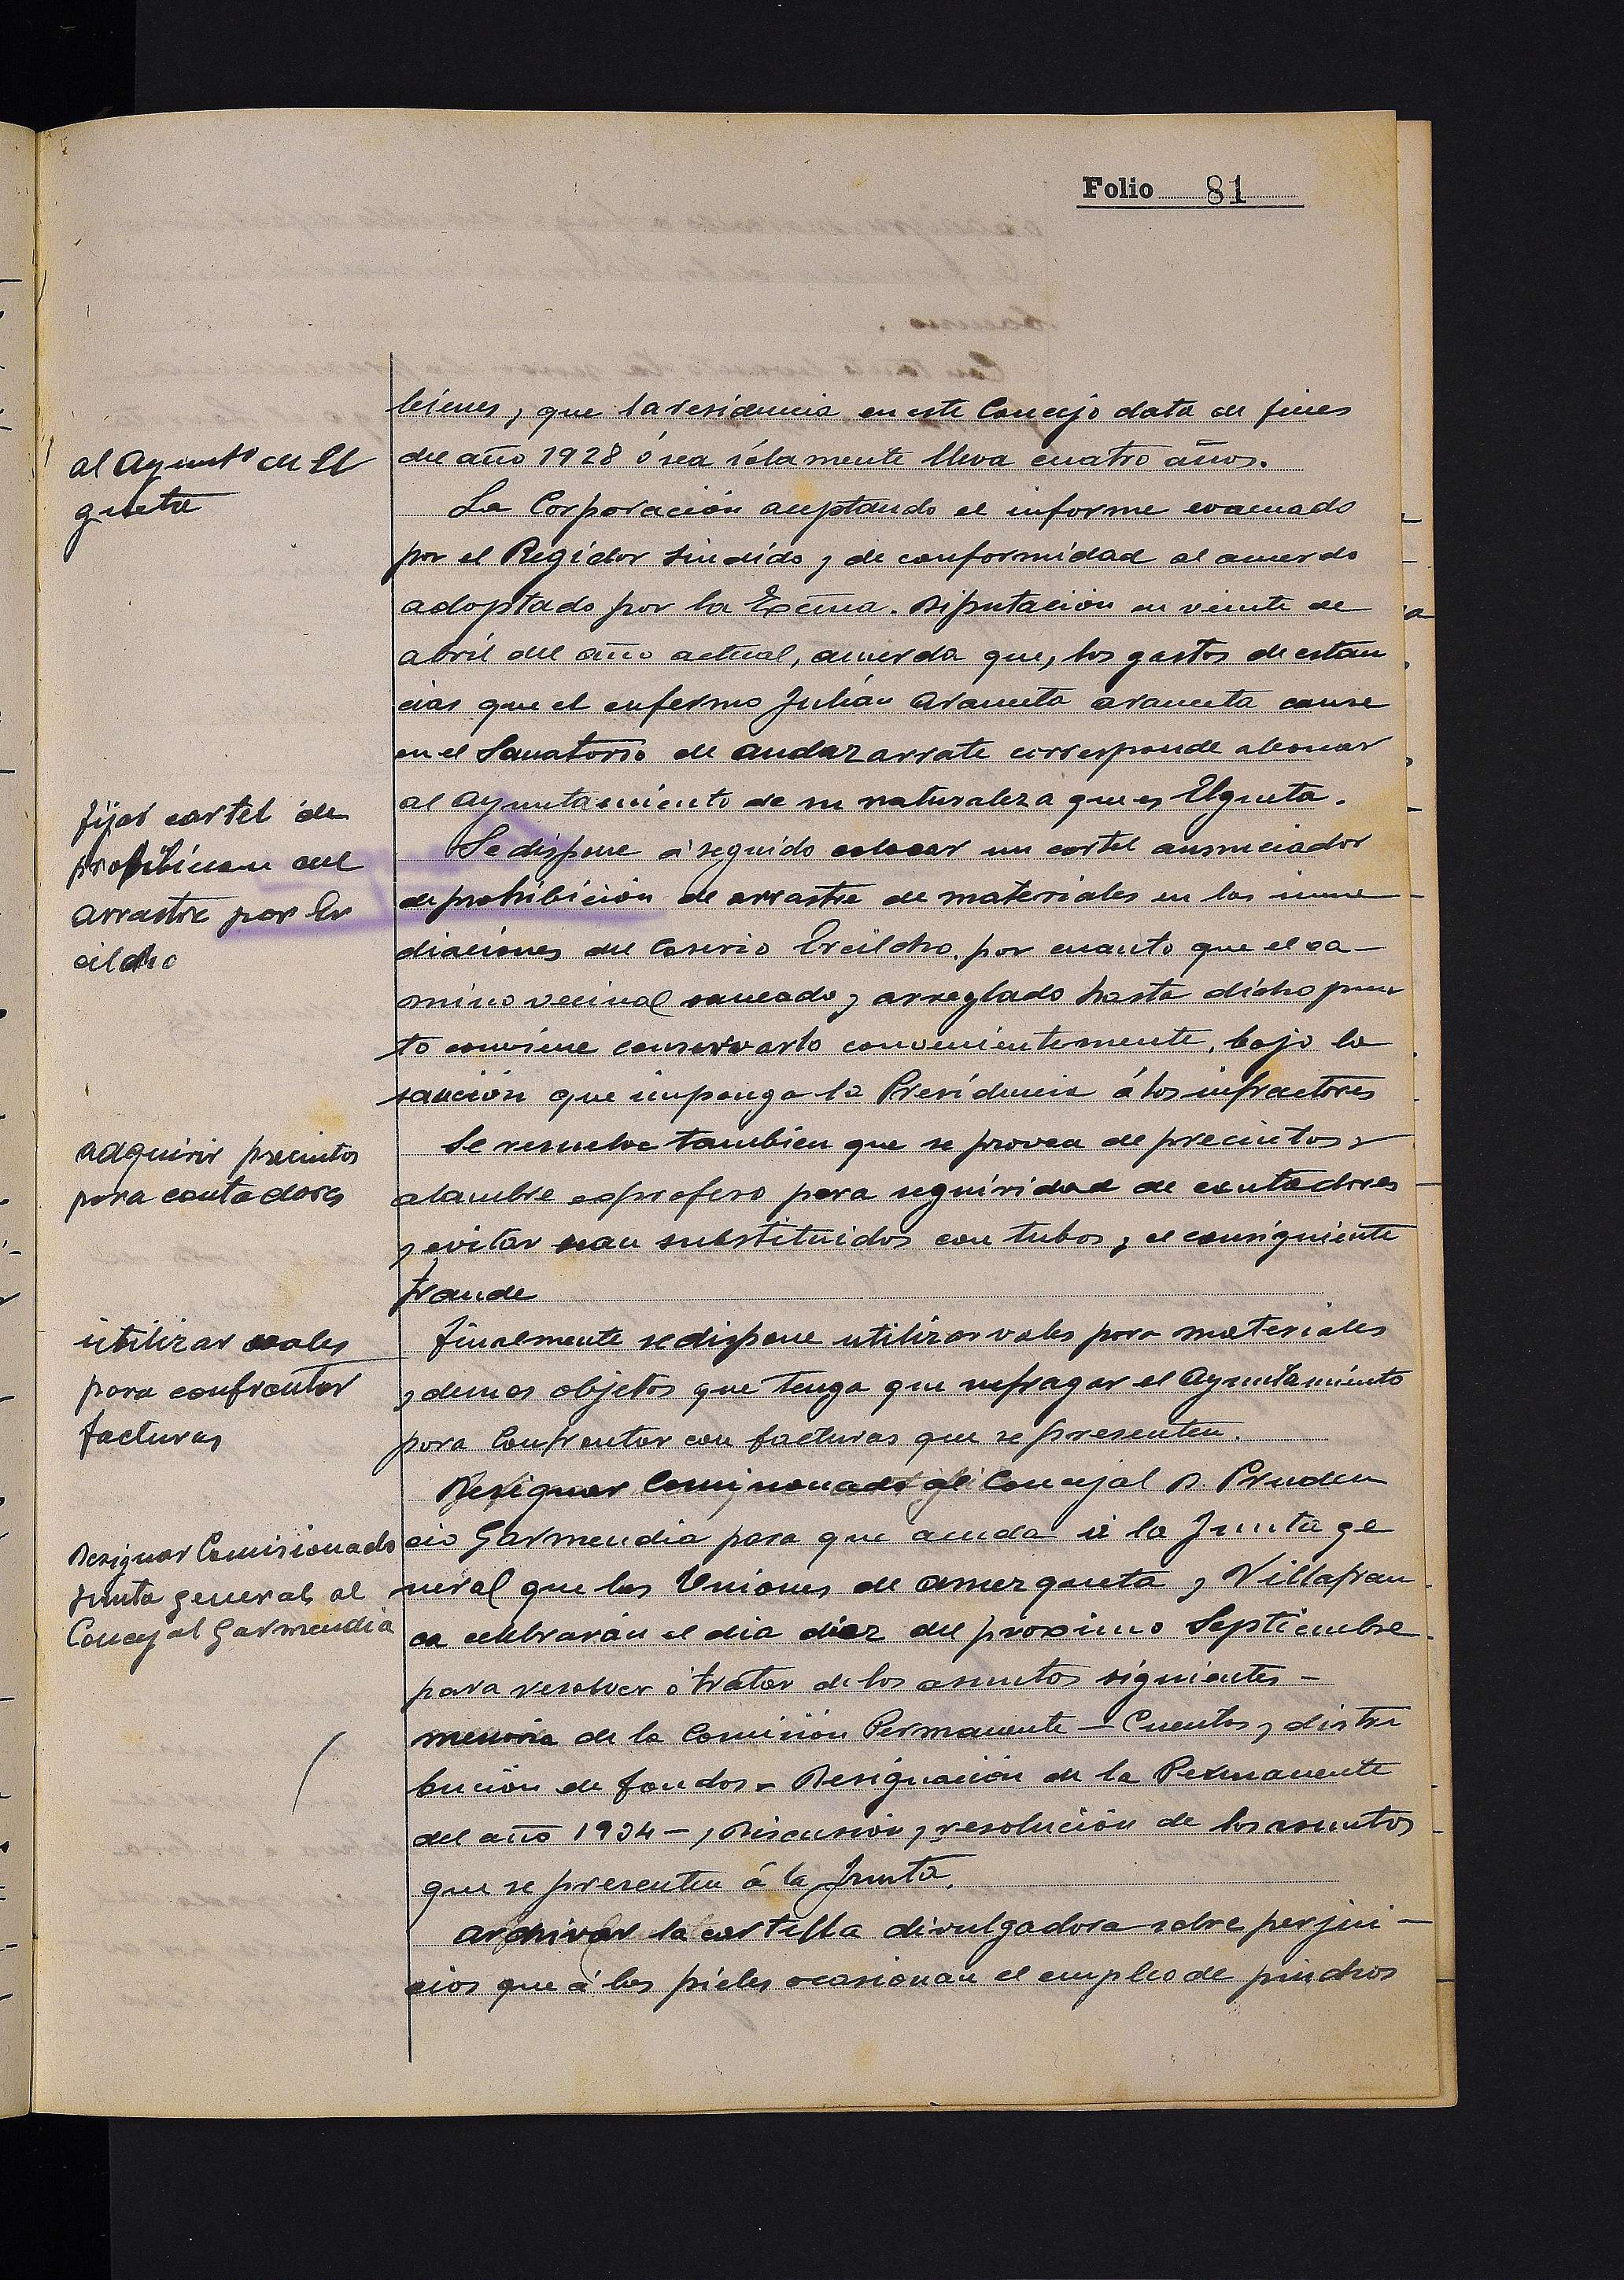 Folio 81
bienes, que la residencia en este Concejo data de fines
al Ayunto de El
gueta
del año 1928 ó sea sólamente lleva cuatro años.
La Corporación aceptando el informe evacuado
por el Regidor Sindido y de conformidad al acuerdo
adoptado por la Excma. Diputación en veinte de
abríl del año actual, acuerda que, los gastos de estan
cias que el enfermo Julián Aramenta aramenta cause
en el Sanatorio de Andazarrate corresponde abonar
al Ayuntamiento de su naturaleza que es Elgueta.
fijar cartel de
prohibicion del
arrastre por Er
cilcho
Se dispone á seguido colocar un cartel anunciador
de prohibición de arrastre de materiales en las inme
diaciones del Caserio Ercilcho, por cuanto que el ca-
mino vecinal saneado y arreglado hasta dicho pun
to conviene conservarlo convenientemente, bajo la
sanción que imponga la Presidencia á los infractores
adquirir precintos
para contadores
Se resuelve tambien que se provea de precintos y
alambre exprofeso para seguiridad de contadores
y evitar sean substituidos con tubos y el consiguiente
fraude
utilizar vales
para confrontar
facturas
finalmente se dispone utilizar vales para materiales
y demas objetos que tenga que sufragar el Ayuntamiento
para Confrontar con facturas que se presenten.
Designar Comisionado
Junta general al
Concejal Garmendia
Designar Comisionado al Concejal D. Pruden
cio Garmendia para que acuda á la Junta ge
neral que las Uniones de Amezqueta y Villafran
ca celebrarán el dia diez del proximo Septiembre
para resolver ó tratar de los asuntos siguientes-
memoria de la Comisión Permanente - Cuentas y distri
bución de fondos - Designación de la Permanente
del año 1934 - y Discusión y resolución de los asuntos
que se presenten á la Junta.
Archivar la cartilla divulgadora sobre perjui-
cios que á las pieles ocasionan el empleo de pinchos